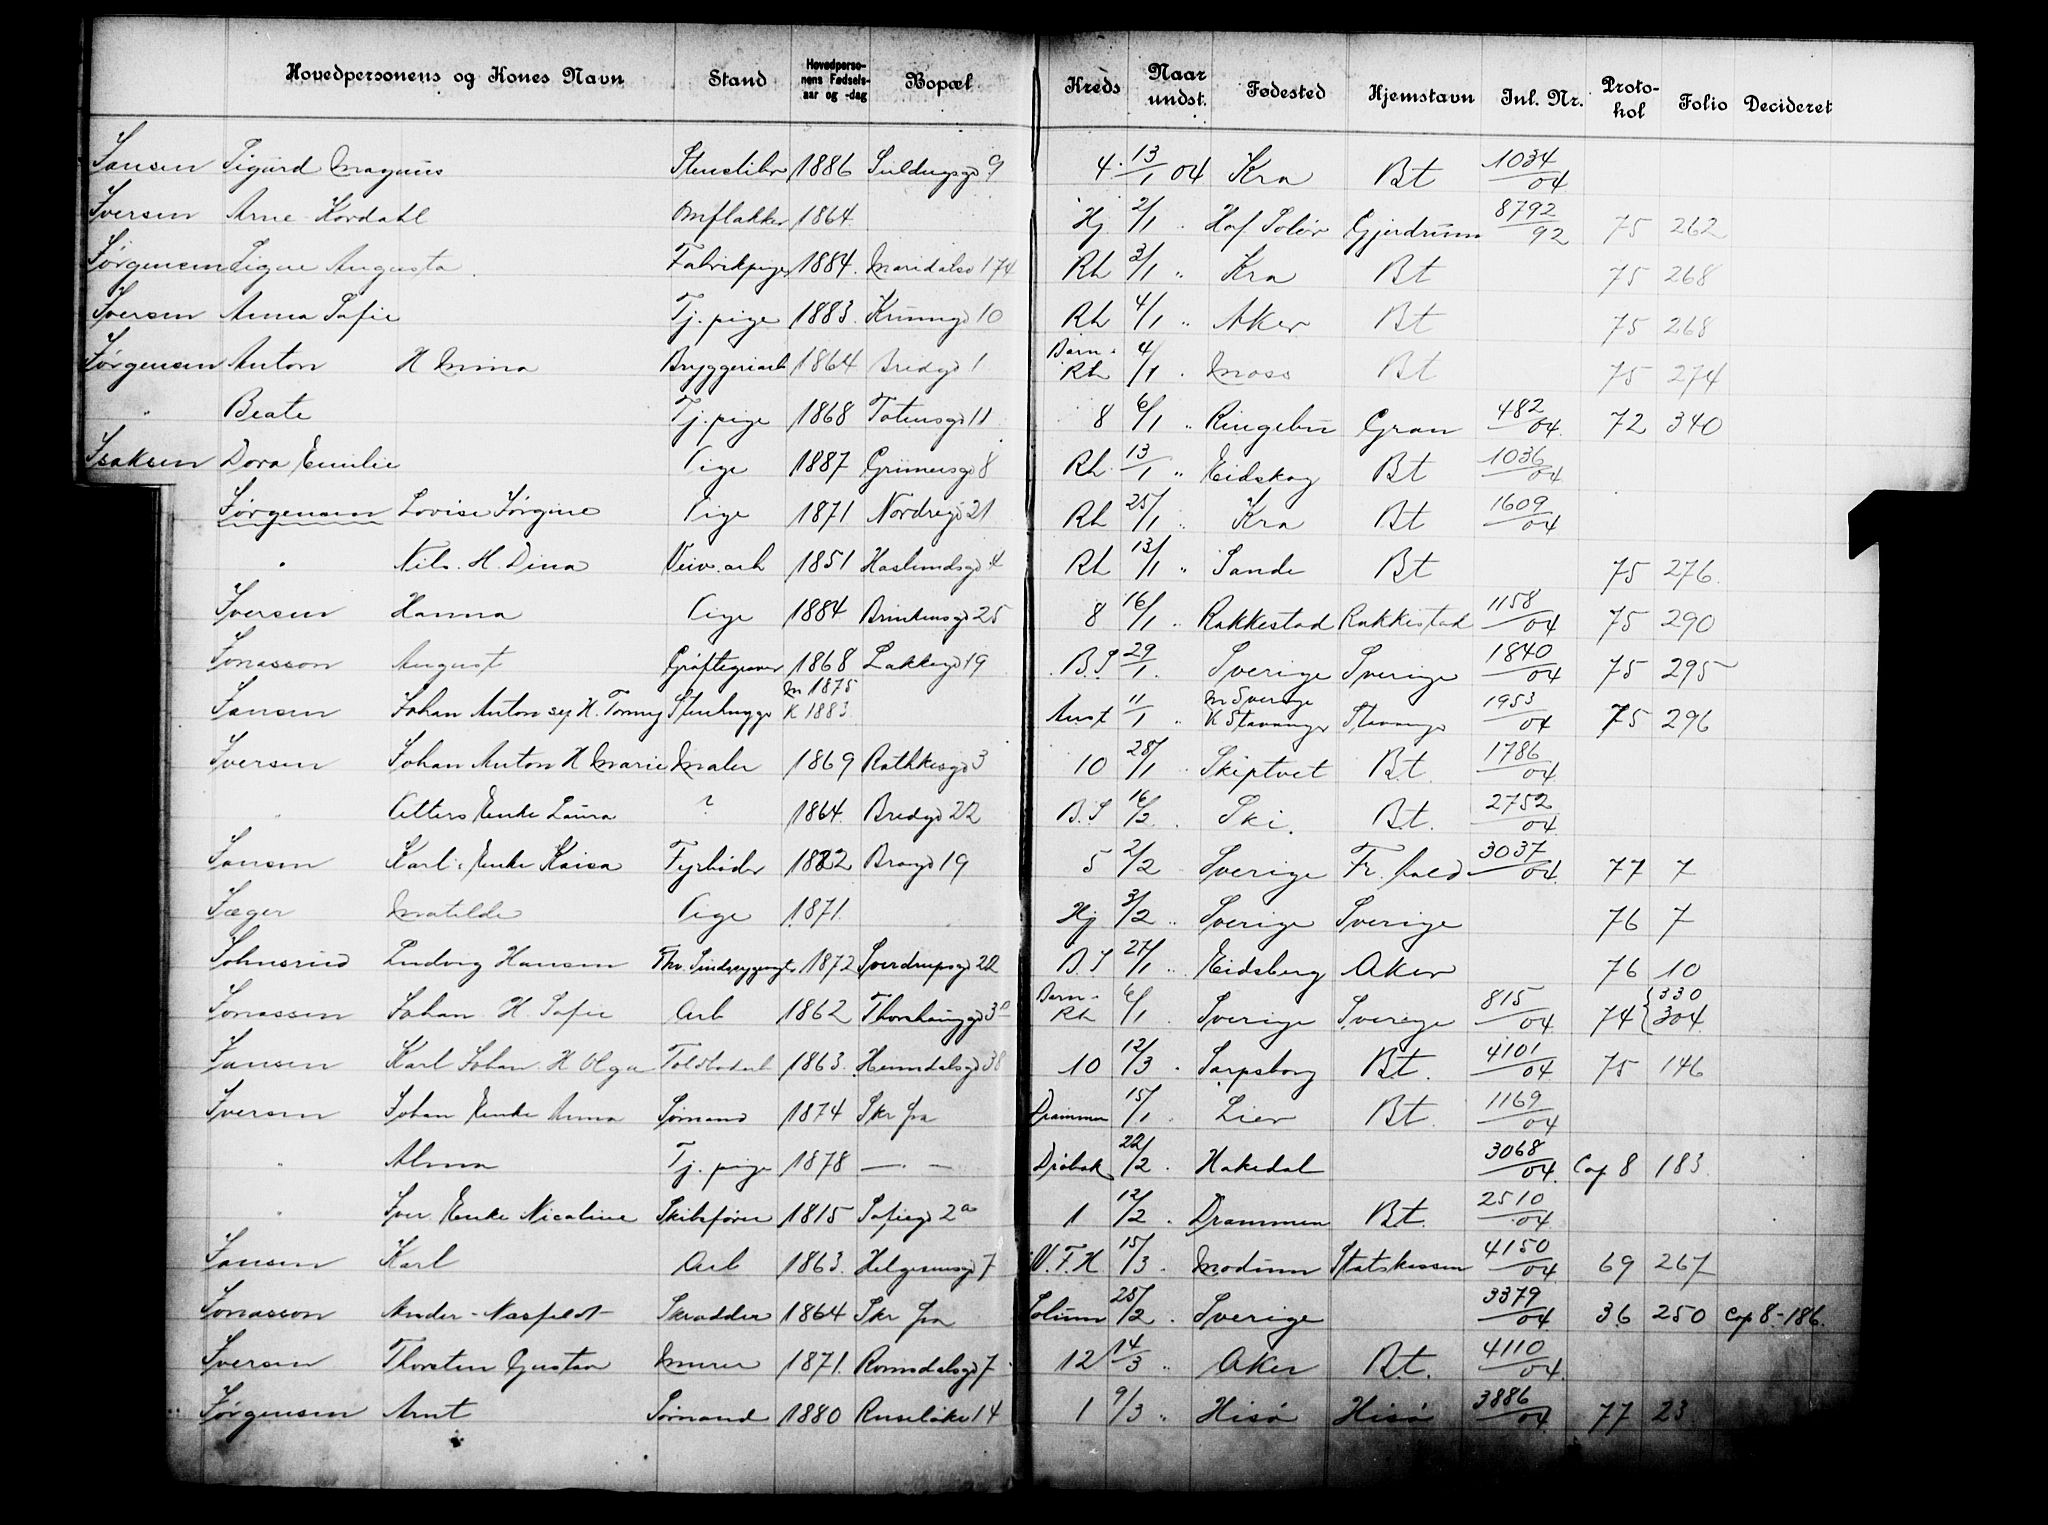 Hovedpersonens og Kones Navn Stand Hovedpersonens Fødselsaar og -dag Bopæl Kreds Naar undst. Fødested Hjemstavn Inl. Nr. Protokol Folio Decideret
Jansen Sigurd Magnus 1886 9 4. 13/1 04 Kra Bt 1034/04
Iversen Arne Kordahl Omflakker 1864 Hj 2/1 " Hof Solør Gjerdrum 8792/92 75 262
Jørgensen Signe Augusta Fabrikpige 1884. Maridalsv 174 Rh 3/1 " Kra Bt 75 268
Iversen Anna Sofie Tj. pige 1883. 10 Rh 4/1 " Aker Bt 75 268
Jørgensen Anton H Mina Bryggeriarb 1864 Bredgd 1 Barn. Rh 4/1 . Moss Bt 75 274
" Beate Tj. pige 1868 Totensgd 11 8 6/1 " Ringebu Gran 482/04 72 340
Isaksen Dora Emilie Pige 1887 Grünersgd 8 Rh. 13/1 " Eidskog Bt 1036/04
Jørgensen Lovise Jørgine Pige 1871 Nordregd 21 Rh 25/1 " Kra Bt 1609/04
" Nils. H. Dina Veiv. arb 1851 Haslundsgd 4 Rh 13/1 " Sande Bt 75 276.
Iversen Hanna Pige 1884 Brinkensgd 25 8 16/1 " Rakkestad Rakkestad 1158/04 75 290
Jonasson August Grøftegraver 1868 Lakkegd 19 B.S 29/1. Sverige Sverige 1840/04 75 295
Jansen Johan Anton H. Tomy Stenhugge M 1875 K 1883. 11/1 " M Sverige K Stavanger Stavanger 1953/04 75 296
Iversen Johan Anton H Marie Maler 1869 Rathkesgd 3 10 28/1 " Skiptvet Bt. 1786/04
" Enke Laura ? 1864. Bredgd 22 B.S 16/2. Ski. Bt. 2752/04
Jansen Karl. Enke Kaisa Fyrbøder 1822 19 5 2/2 Sverige Fr. hald 3037/04 77 7
Jæger Matilde Pige 1871. Hj 3/2 " Sverige Sverige 76 7
Johnsrud Ludvig Hansen 1872 Sverdrupsgd 22 B.S 27/1 " Eidsberg Aker 76 10
Jonassen Johan H. Sofie Arb 1862 Thorshauggd 3 Barn. Rh 6/1 . Sverige Sverige 815/04 74 330 304
Jansen Karl Johan. H Olga 1863. Heimdalsgd 38 10 12/3 . Sarpsborg Bt. 4101/04 75 146
Iversen Johan Enke Anna Sømand 1874 Skr fra Drammen 15/1 . Lier Bt. 1169/04
" Alma Tj. pige 1878 — . — Drøbak 22/2 . Hakedal 3068/04 Cop 8 183.
" Iver Enke Nicoline Skibsfører 1815 Sofiegd 2a 1 12/2 . Drammen Bt. 2510/04
Jansen Karl Arb 1863. Helgesensgd 7 V.F.H 15/3 . Modum Statskassen 4150/04 69 267
Jonasson Ander Skrædder 1864 Skr fra Solum 25/2 . Sverige 3379/04 36 250 Cop 8-186.
Iversen Thorsten Gustav Murer 1871. Romsdalsgd 7 12 14/3 " Aker Bt. 4110/04.
Jørgensen Arnt Sømand 1880 Ruseløkv 14 1 9/3 " Hisø Hisø 3886/04 77 23